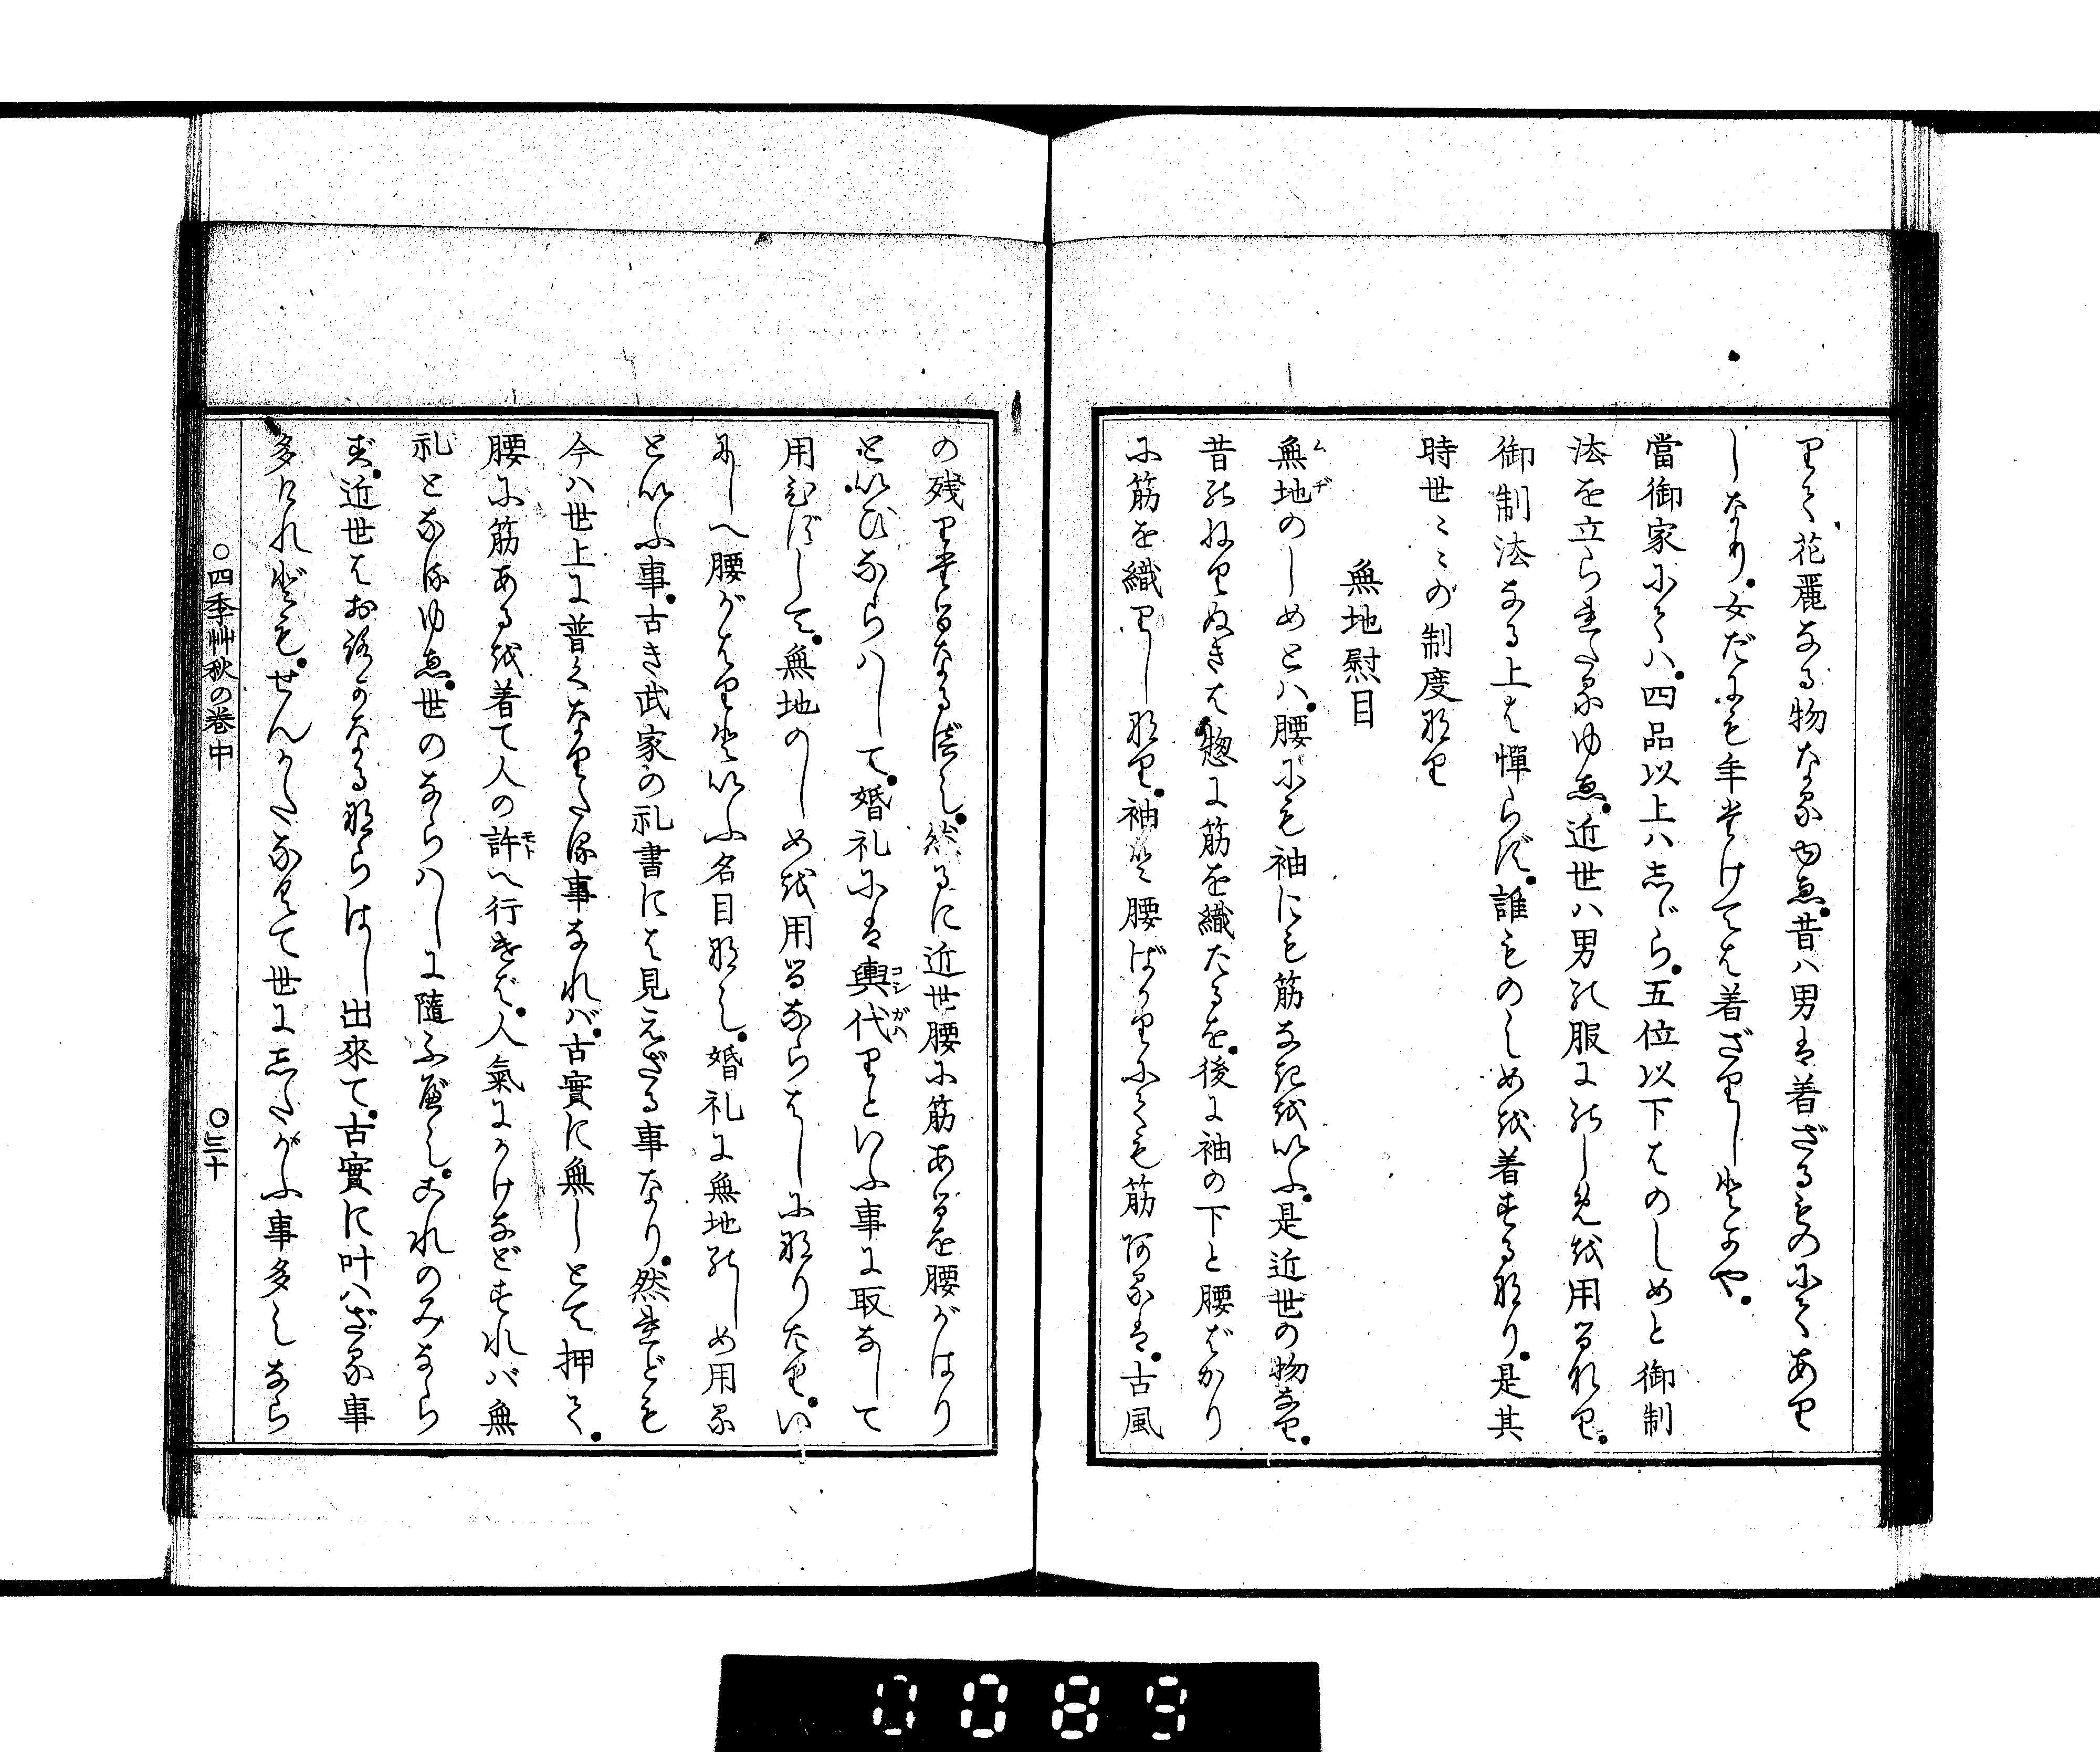 りて花麗なる物なるゆゑ。昔ハ男は着ざるものにてあり
しなり。女だにも年たけては着ざりしとかや。
當御家にてハ。四品以上ハしゞら。五位以下はのしめと御制
法を立られたるゆゑ。近世ハ男の服にのしめを用るなり。
御制法なる上は憚らず。誰ものしめを着するなり。是其
時世〻〻の制度なり
無地熨目
無地のしめとハ。腰にも袖にも筋なきをいふ。是近世の物なり。
昔のねりぬきは惣に筋を織たるを。後に袖の下と腰ばかり
に筋を織りしなり。袖と腰ばかりにても筋あるは。古風
の残りたるなるべし。然るに近世腰に筋あるを腰がはり
といひならハして。婚礼には輿代りといふ事に取なして
用ひずして。無地のしめを用るならはしになりたり。い
にしへ腰がはりといふ名目なし。婚礼に無地のしめ用る
といふ事。古き武家の礼書には見えざる事なり。然れども
今ハ世上に普くなりたる事なれバ。古實に無しとて押て。
腰に筋あるを着て人の許へ行けば。人氣にかけなどすれバ無
礼となるゆゑ。世のならハしに隨ふべし。これのみなら
ず。近世はおろかなるならはし出來て。古實に叶ハざる事
多けれども。せんかたなくて世にしたがふ事多しなら
○四季艸秋の巻中
○三十
0089